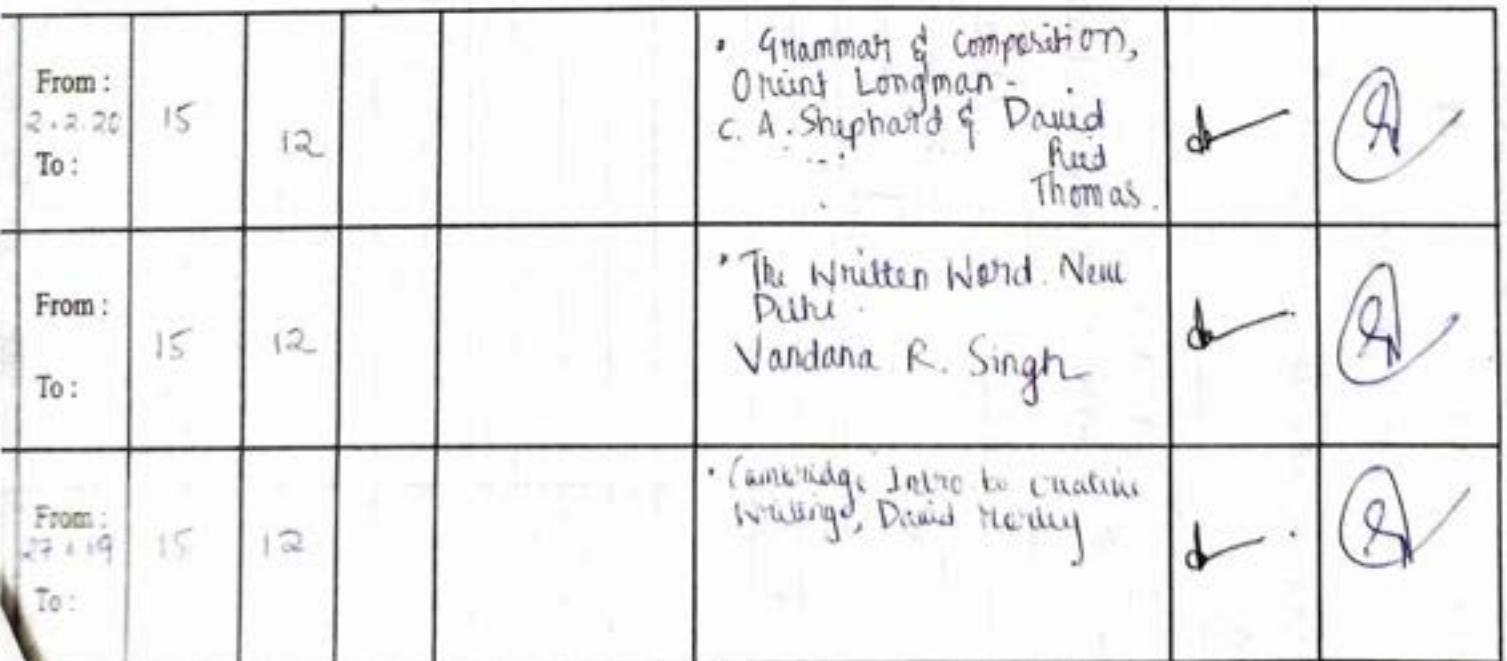 From :
2.2.20
15
12
To :
• Grammar & Composition,
Orient Longman -
C. A. Shephard & David
Reed
Thomas.
From :
15
12
To :
• The Written Word. New
Delhi.
Vandana R. Singh
From :
15
12
To :
• Cambridge Intro to creative
writings, David Morley